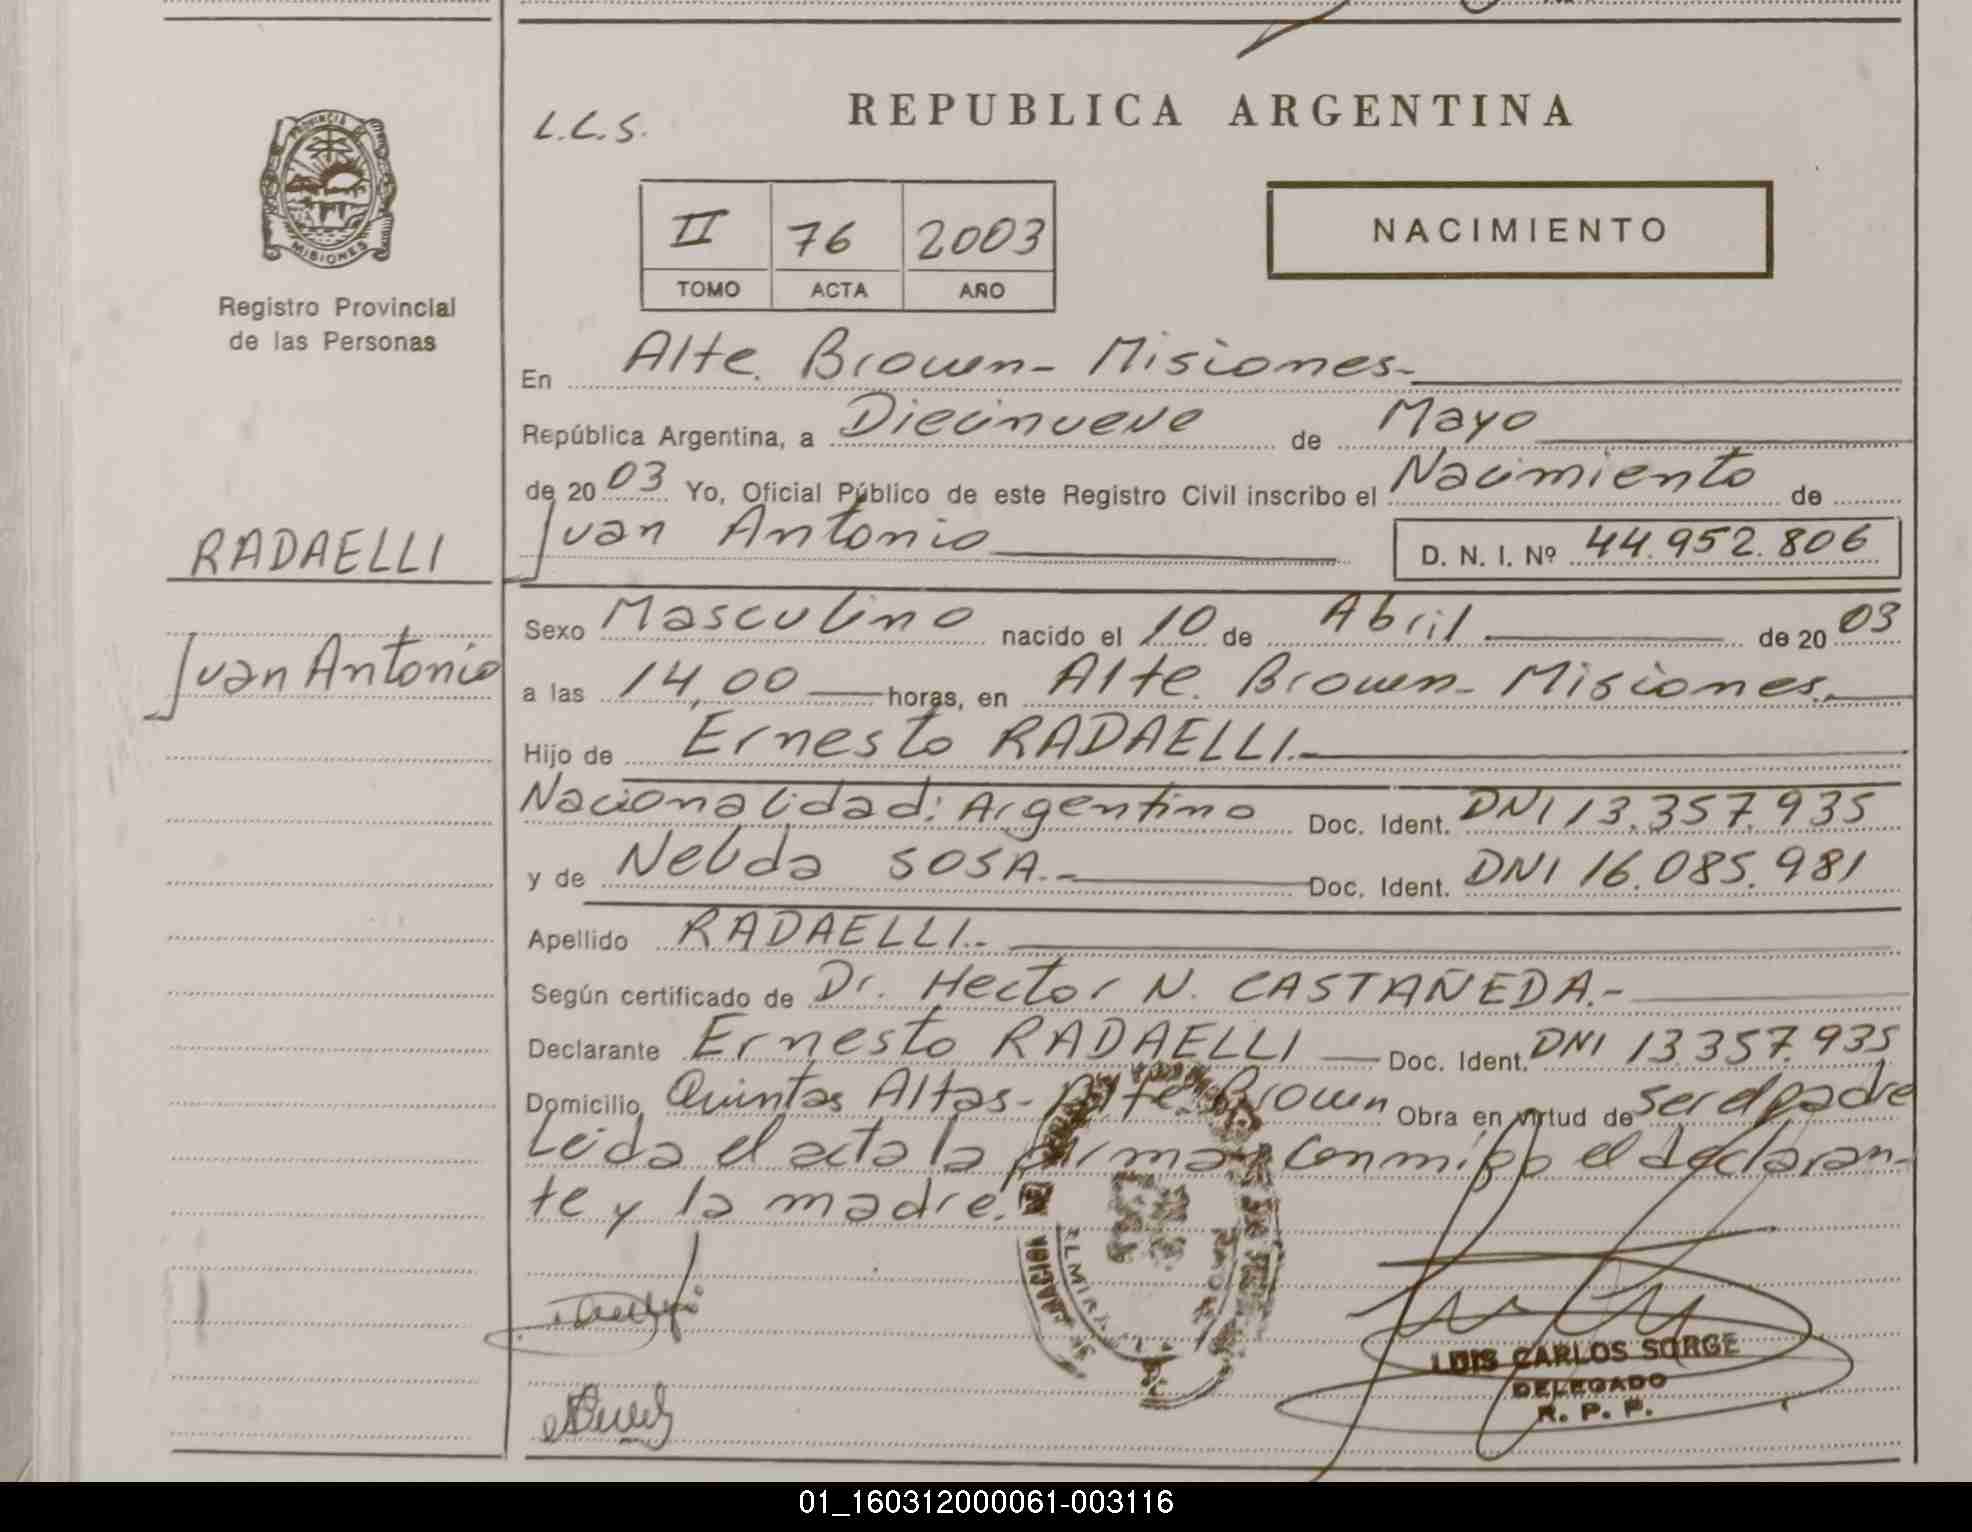 PROVINCIA DE
MISIONES
Registro Provincial
de las Personas
RADAELLI
Juan Antonio
L.C.S.
REPUBLICA ARGENTINA
II 76 2003
TOMO ACTA AÑO
NACIMIENTO
En Alte. Brown - Misiones.
República Argentina, a Diecinueve de Mayo
de 2003 Yo, Oficial Público de este Registro Civil inscribo el Nacimiento de
Juan Antonio D. N. I. Nº 44.952.806
Sexo Masculino nacido el 10 de Abril de 2003
a las 14,00 horas, en Alte. Brown - Misiones.
Hijo de Ernesto RADAELLI.
Nacionalidad: Argentino Doc. Ident. DNI 13.357.935
y de Nelida SOSA.- Doc. Ident. DNI 16.085.981
Apellido RADAELLI.-
Según certificado de Dr. Hector N. CASTAÑEDA.-
Declarante Ernesto RADAELLI Doc. Ident. DNI 13.357.935
Domicilio Quintas Altas - Alte. Brown Obra en virtud de ser el padre
Leida el acta la firman conmigo el declaran-
te y la madre.
LUIS CARLOS SORGE
DELEGADO
R. P. P.
01_160312000061-003116